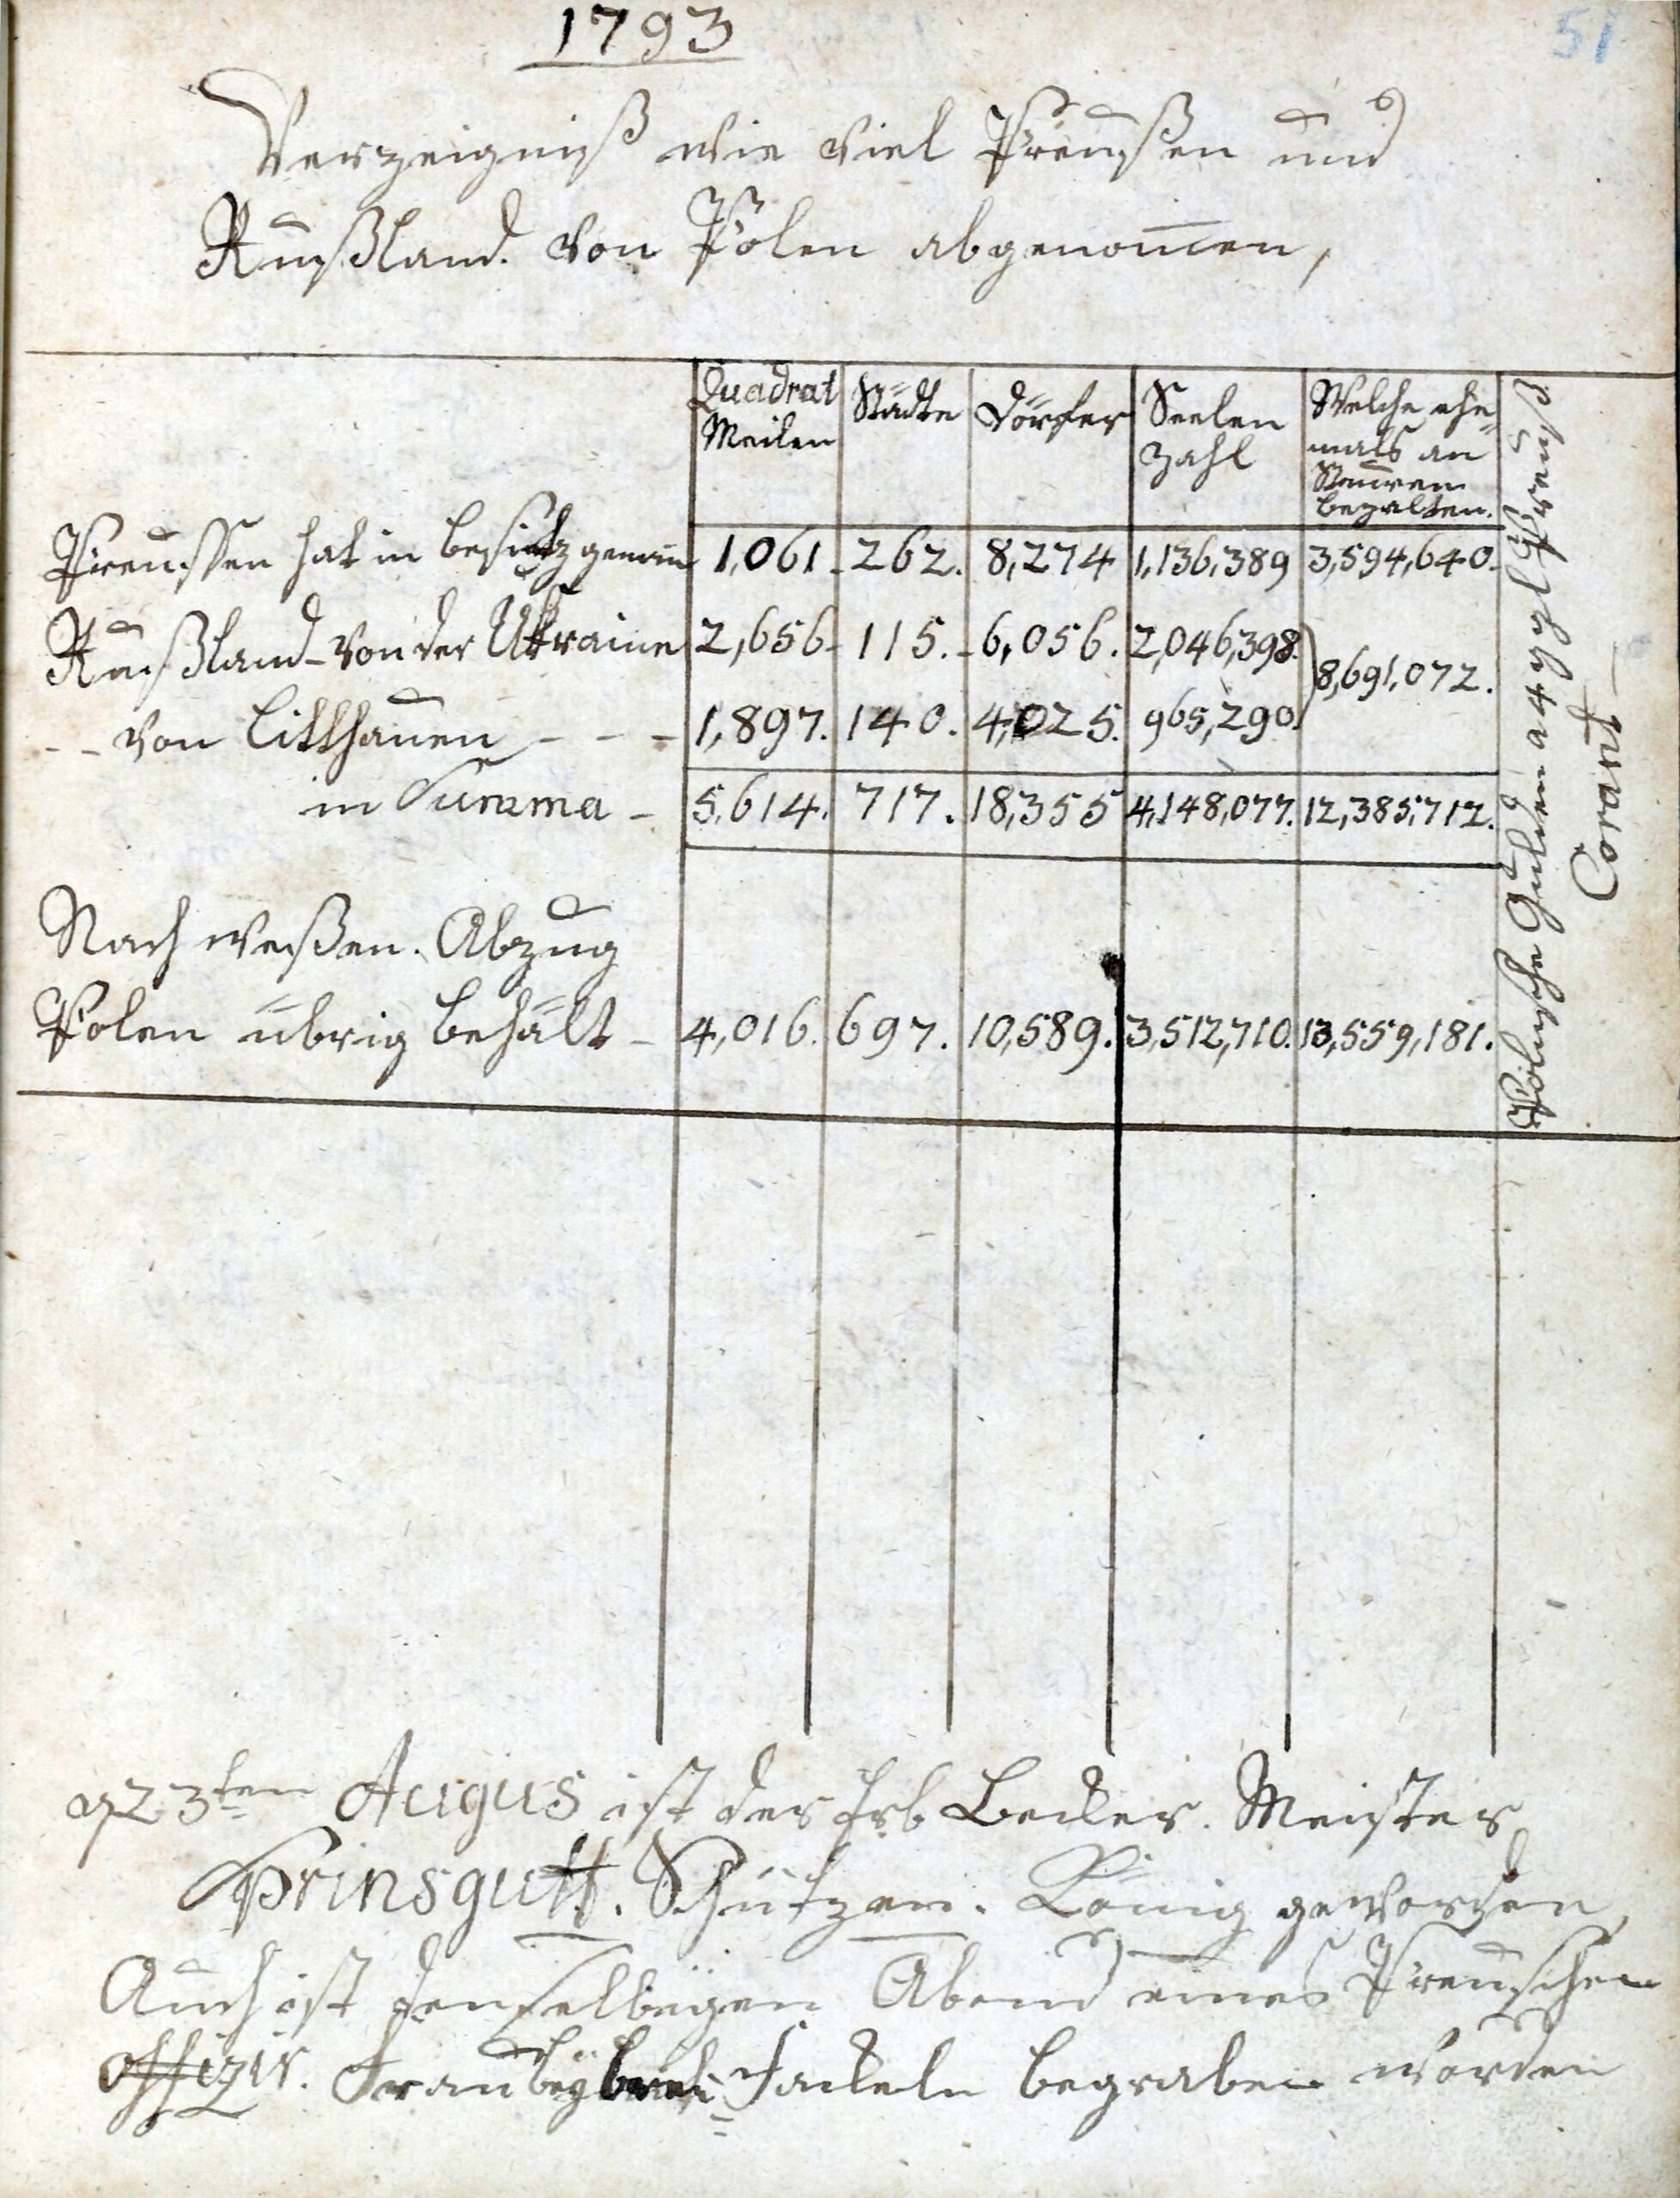 1793
51
Verzeigniß wie viel Preußen und
Rußland. von Polen abgenom̄en,
Quadrat Meilen | Städte | Dörfer | Seelen Zahl | Welche ehe= mals an Steuren bezalten.
Preussen hat in besitz genom̄ 1,061. 262. 8,274 1,136,389 3,594,640.
Rußland von der Ukraine 2,656. 115. 6,056. 2,046,398.
8,691,072.
-- von Litthauen --- 1,897. 140. 4,025. 965,290.
in Summa - 5,614. 717. 18,355 4,148,077. 12,385,712.
Nach weßen. Abzug
Polen übrig behält - 4,016. 697. 10,589. 3,512,710. 13,559,181.
Polnische Gulden a 4 ggl Preuß
Corant
23ten Augus ist der Becker. Meister
Sprinsgutt. Schützen. König geworden,
Auch ist denselbigen Abend eines Preuschen
offizir. Frau bey Fackeln begraben worden